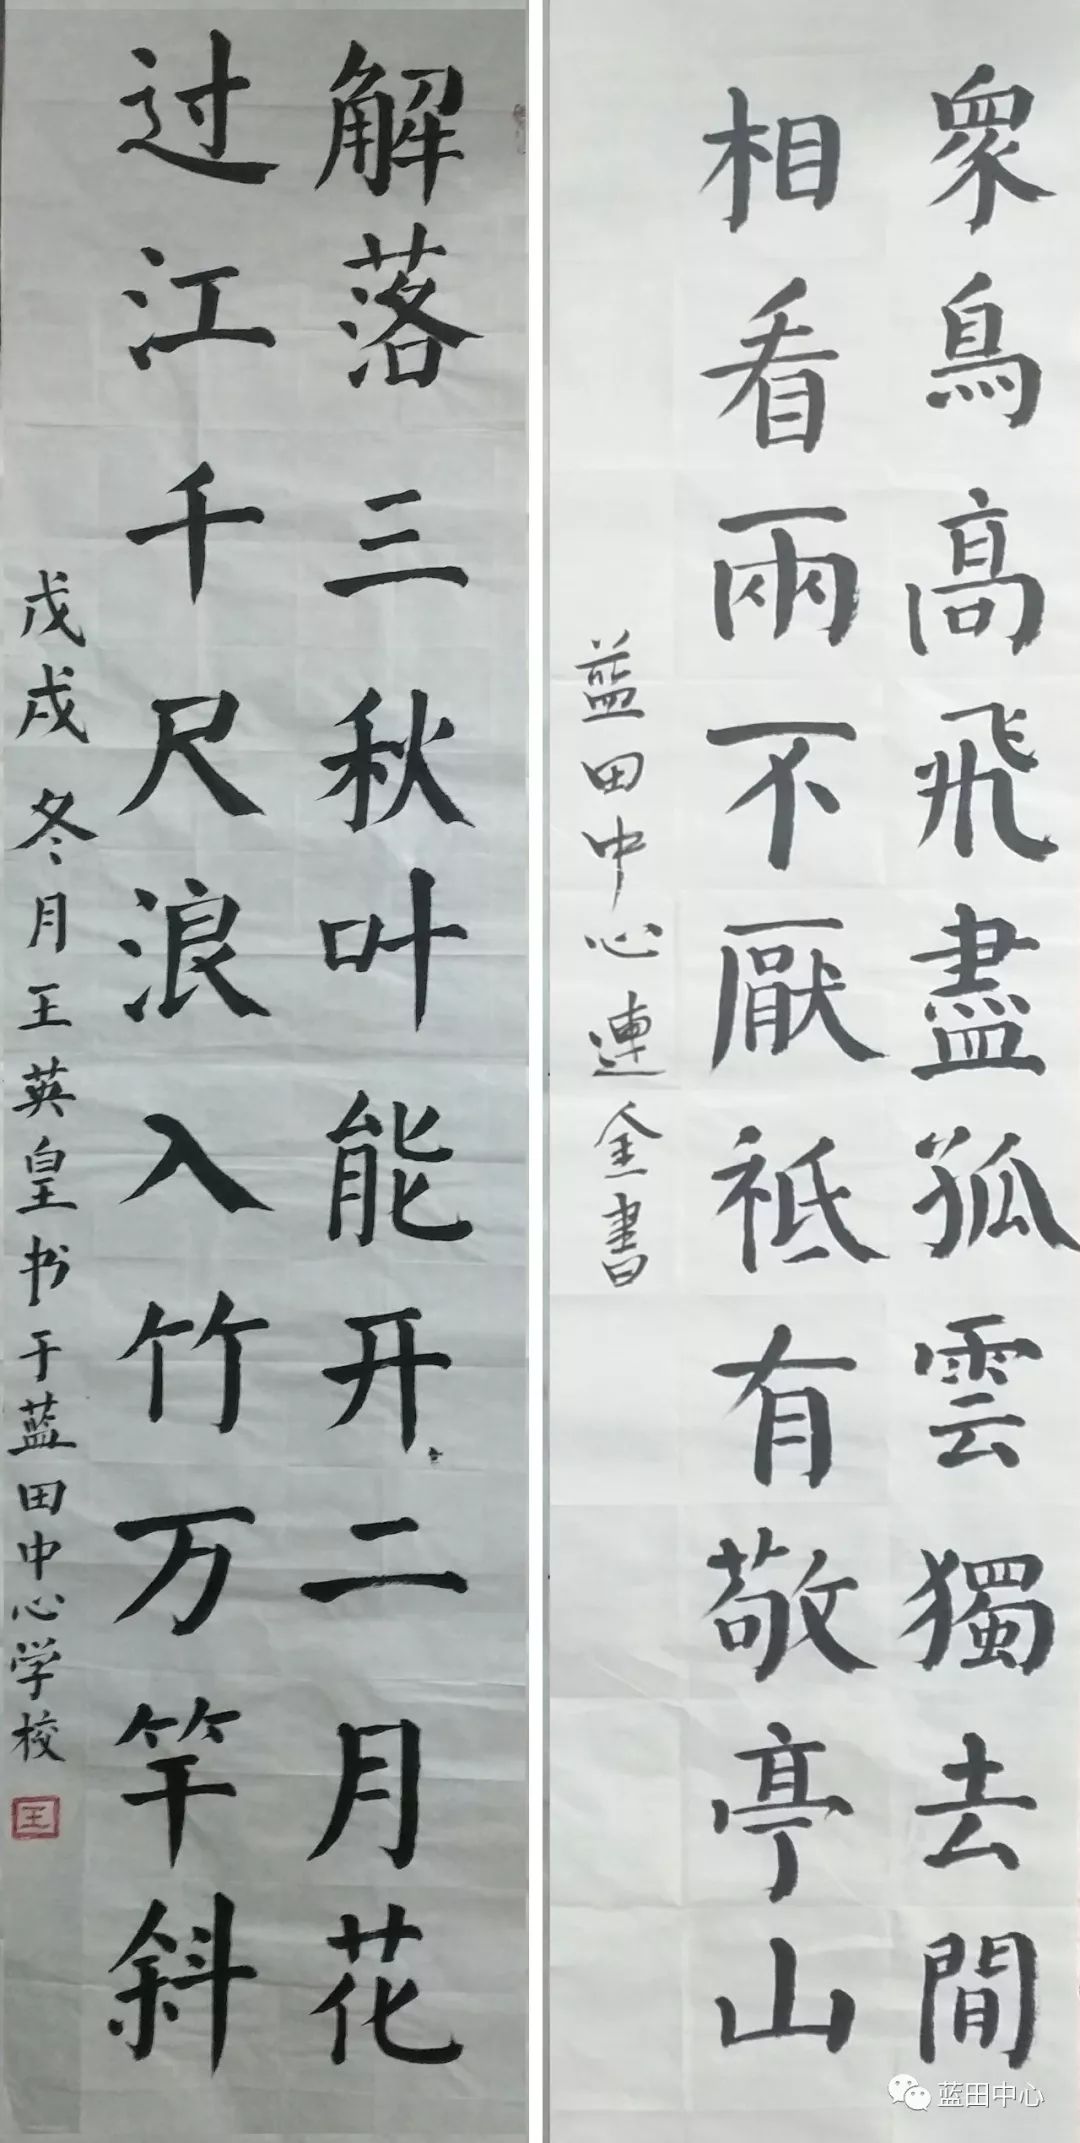 眾鳥高飛盡孤雲獨去間
相看兩不厭祗有敬亭山
蓝田中心連金書
解落三秋叶能开二月花
过江千尺浪入竹万竿斜
戊戌冬月王英皇书于蓝田中心学校
王
蓝田中心